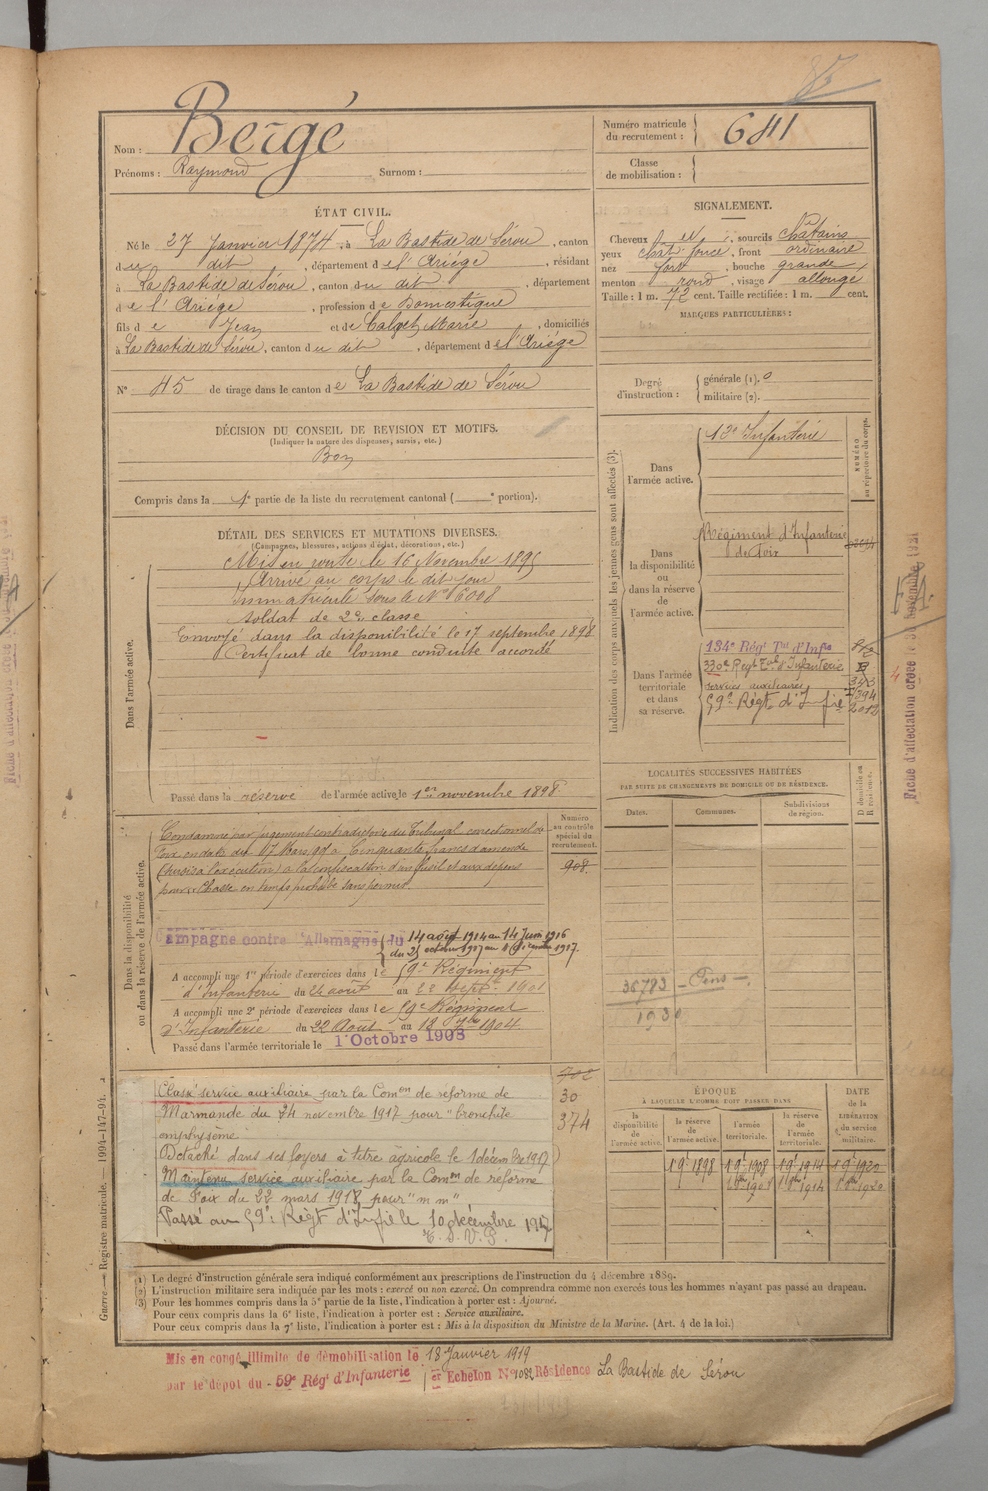 Nom : Bergé
Prénoms : Raymond Surnom :
Numéro matricule du recrutement : 641
Classe de mobilisation :
ÉTAT CIVIL.
Né le 27 Janvier 1874, à La Bastide de Sérou, canton
du dit, département de l'Ariége, résidant
à La Bastide de Sérou, canton du dit, département
de l'Ariége, profession de Domestique
fils de Jean et de Calget Marie, domiciliés
à La Bastide de Sérou, canton du dit, département de l'Ariége
N° 45 de tirage dans le canton de La Bastide de Sérou
SIGNALEMENT.
Cheveux et, sourcils châtains
yeux chât. foncé, front ordinaire
nez fort, bouche grande
menton rond, visage allongé
Taille : 1 m. 72 cent. Taille rectifiée : 1 m. cent.
MARQUES PARTICULIÈRES :
Degré d'instruction : générale (1). 0
militaire (2).
DÉCISION DU CONSEIL DE REVISION ET MOTIFS.
(Indiquer la nature des dispenses, sursis, etc.)
Bon
Compris dans la 1e partie de la liste du recrutement cantonal ( e portion).
DÉTAIL DES SERVICES ET MUTATIONS DIVERSES.
(Campagnes, blessures, actions d'éclat, décorations, etc.)
Dans l'armée active.
Mis en route le 16 Novembre 1895
Arrivé au corps le dit jour
Immatriculé sous le N° 6008
soldat de 2e classe
Envoyé dans la disponibilité le 17 septembre 1898
Certificat de bonne conduite accordé
Passé dans la réserve de l'armée active le 1er novembre 1898
Indication des corps auxquels les jeunes gens sont affectés (3).
NUMÉRO au répertoire du corps.
Dans l'armée active.
12e Infanterie
Dans la disponibilité ou dans la réserve de l'armée active.
Régiment d'Infanterie
de Foix
Dans l'armée territoriale et dans sa réserve.
134e Régt Tal d'Infie
330e Régt Tal d'Infanterie
services auxiliaires
59e Régt d'Infie
Fiche d'affectation créée le 30 Novembre 1921
Dans la disponibilité ou dans la réserve de l'armée active.
Numéro au contrôle spécial du recrutement.
908
Condamné par jugement contradictoire du Tribunal correctionnel de
Foix en date du 17 Mars 99 à Cinquante francs d'amende
(sursis à l'exécution) à la confiscation d'un fusil et aux dépens
pour : Chasse en temps prohibé sans permis.
Campagne contre l'Allemagne du 14 août 1914 au 14 Juin 1916
A accompli une 1re période d'exercices dans le 59e Régiment
d'Infanterie du 26 août au 22 septbre 1901
A accompli une 2e période d'exercices dans le 59e Régiment
d'Infanterie du 22 Août au 18 7bre 1904
Passé dans l'armée territoriale le 1 Octobre 1908
LOCALITÉS SUCCESSIVES HABITÉES
PAR SUITE DE CHANGEMENTS DE DOMICILE OU DE RÉSIDENCE.
Dates. Communes. Subdivisions de région. D domicile ou R résidence.
36783 – Pens –
1930
30
374
Classé service auxiliaire par la Comon de réforme de
Marmande du 24 novembre 1917 pour "bronchite
emphysème
Détaché dans ses foyers à titre agricole le 1 décembre 1917
Maintenu service auxiliaire par la Comon de réforme
de Foix du 22 mars 1918 pour "m m"
Passé au 59e Régt d'Infie le 10 décembre 1917
T. S. V. P.
ÉPOQUE
À LAQUELLE L'HOMME DOIT PASSER DANS
la disponibilité de l'armée active. la réserve de l'armée active. l'armée territoriale. la réserve de l'armée territoriale.
DATE de la LIBÉRATION du service militaire.
(1) Le degré d'instruction générale sera indiqué conformément aux prescriptions de l'instruction du 4 décembre 1889.
(2) L'instruction militaire sera indiquée par les mots : exercé ou non exercé. On comprendra comme non exercés tous les hommes n'ayant pas passé au drapeau.
(3) Pour les hommes compris dans la 5e partie de la liste, l'indication à porter est : Ajourné.
Pour ceux compris dans la 6e liste, l'indication à porter est : Service auxiliaire.
Pour ceux compris dans la 7e liste, l'indication à porter est : Mis à la disposition du Ministre de la Marine. (Art. 4 de la loi.)
Guerre. — Registre matricule. — 1994-147-94.
Mis en congé illimité de démobilisation le 18 Janvier 1919
par le dépôt du 59e Régt d'Infanterie 1er Echelon N° 1082 Résidence La Bastide de Sérou